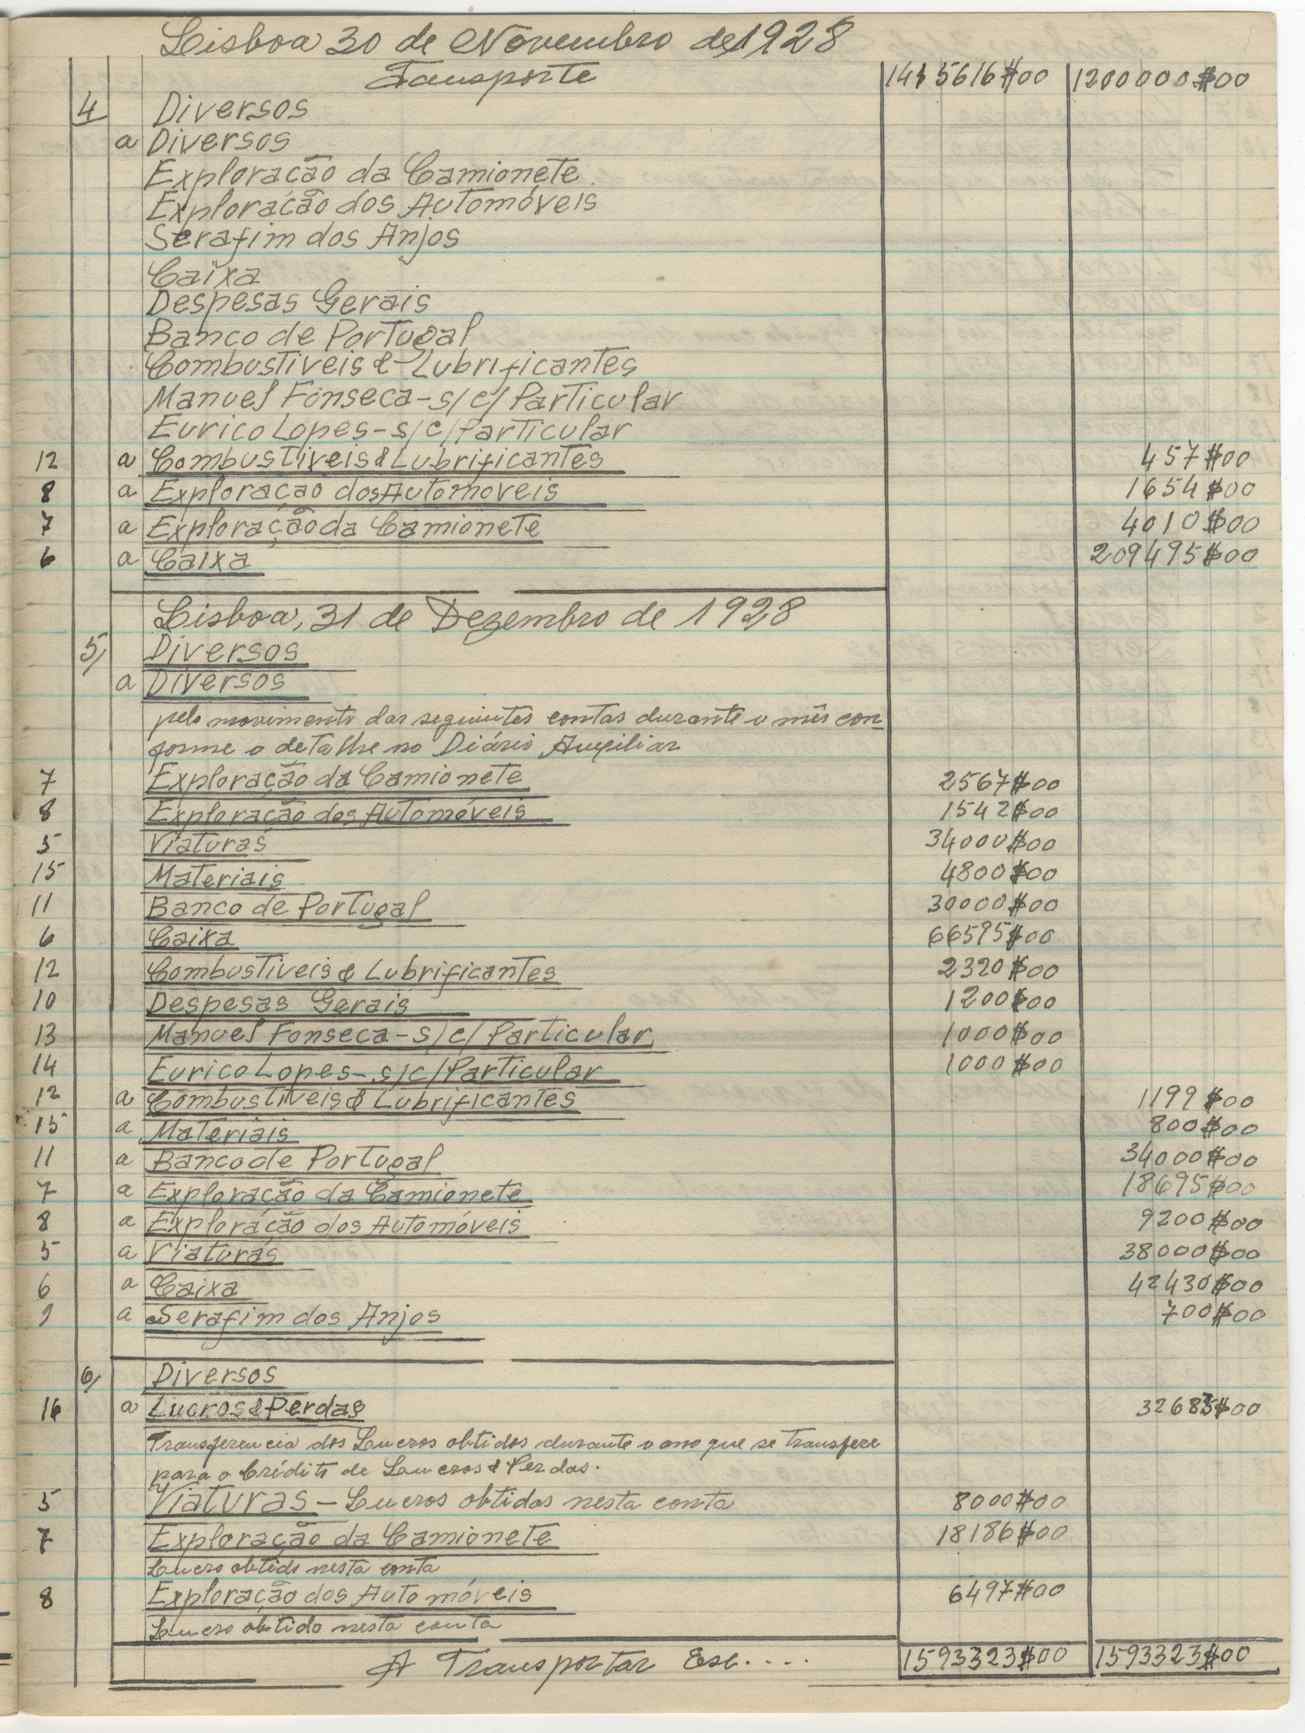 Lisboa 30 de Novembro de 1928
Transporte 1415616$00 1200000$00
4 Diversos
a Diversos
Exploração da Camionete
Exploração dos Automóveis
Serafim dos Anjos
Caixa
Despesas Gerais
Banco de Portugal
Combustiveis & Lubrificantes
Manuel Fonseca - s/c/ Particular
Eurico Lopes - s/c/ Particular
12 a Combustiveis & Lubrificantes 457$00
8 a Exploração dos Automoveis 1654$00
7 a Exploração da Camionete 4010$00
6 a Caixa 209495$00
Lisboa, 31 de Dezembro de 1928
5/ Diversos
a Diversos
pelo movimento das seguintes contas durante o mês con
forme o detalhe no Diário Auxiliar
7 Exploração da Camionete 2567$00
8 Exploração dos Automóveis 1542$00
5 Viaturas 34000$00
15 Materiais 4800$00
11 Banco de Portugal 30000$00
6 Caixa 66595$00
12 Combustiveis & Lubrificantes 2320$00
10 Despesas Gerais 1200$00
13 Manuel Fonseca - s/c/ Particular 1000$00
14 Eurico Lopes - s/c/ Particular 1000$00
12 a Combustiveis & Lubrificantes 1199$00
15 a Materiais 800$00
11 a Banco de Portugal 34000$00
7 a Exploração da Camionete 18695$00
8 a Exploração dos Automóveis 9200$00
5 a Viaturas 38000$00
6 a Caixa 42430$00
9 a Serafim dos Anjos 700$00
6/ Diversos
16 a Lucros & Perdas 32683$00
Transferencia dos Lucros obtidos durante o ano que se transfere
para o Crédito de Lucros & Perdas.
5 Viaturas - Lucros obtidos nesta conta 8000$00
7 Exploração da Camionete 18186$00
Lucro obtido nesta conta
8 Exploração dos Automóveis 6497$00
Lucro obtido nesta conta
A Transportar Esc.... 1593323$00 1593323$00